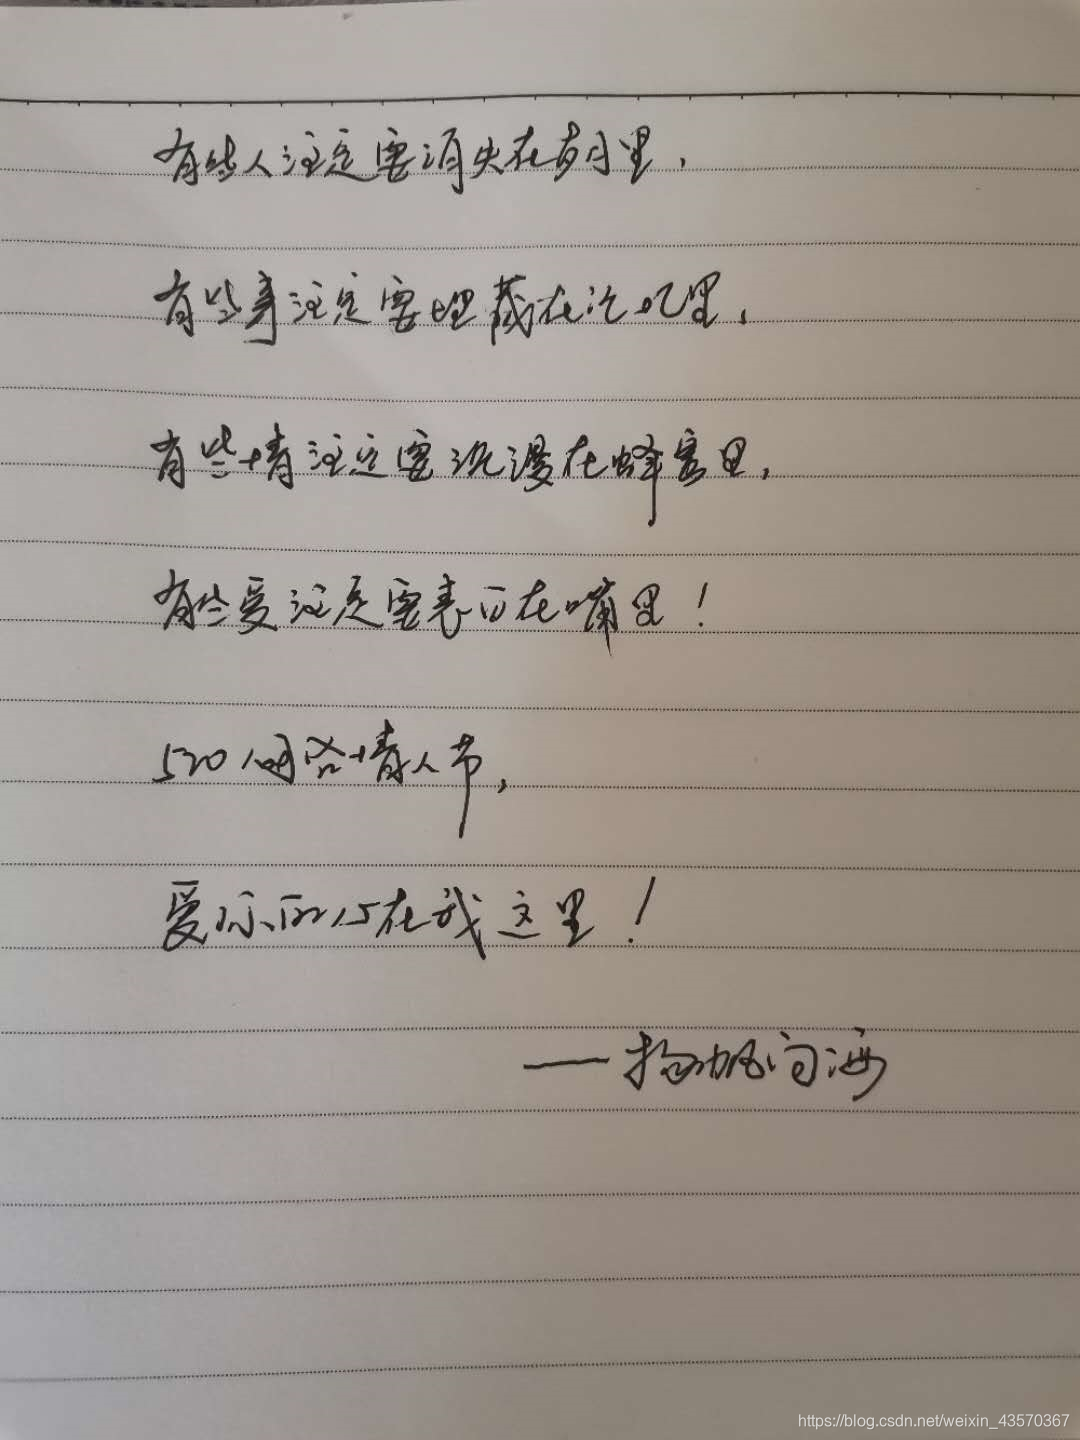 有些人注定要消失在岁月里,
有些事注定要埋藏在记忆里,
有些情注定要沉浸在蜂蜜里,
有些爱注定要表白在嘴里!
520网络情人节,
爱你所以在我这里!
——扬帆向海
https://blog.csdn.net/weixin_43570367